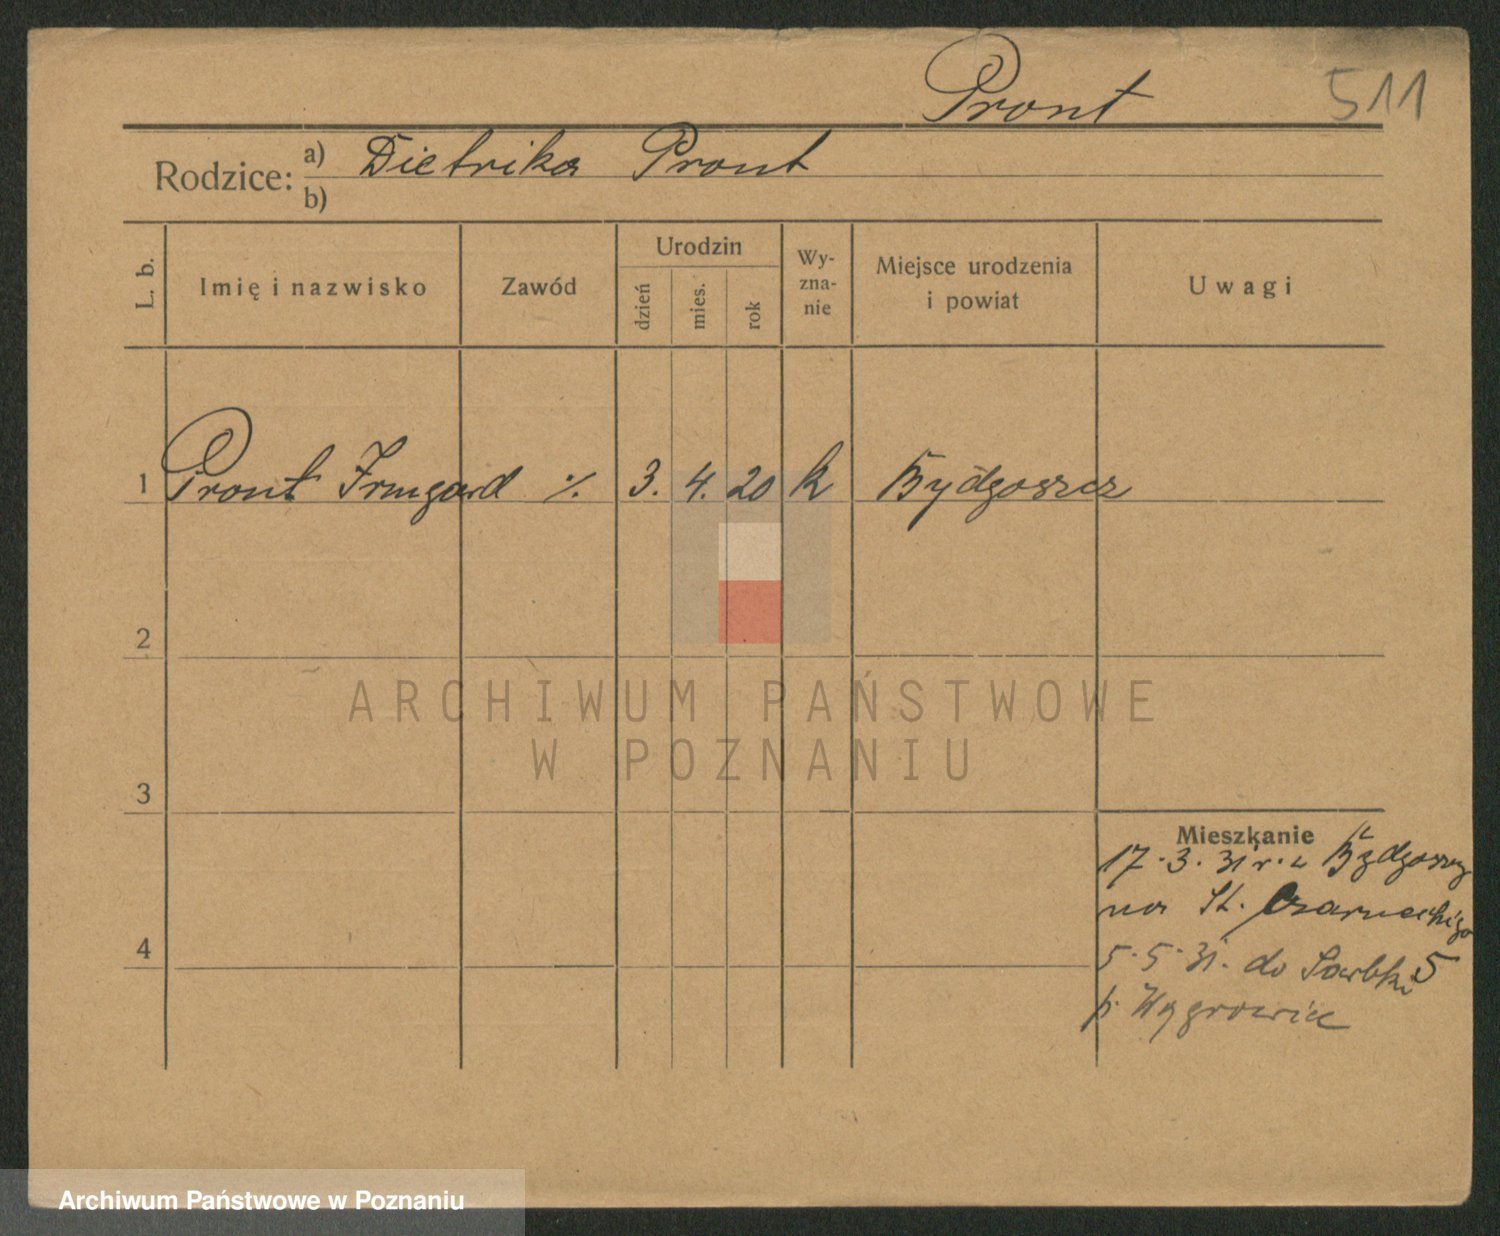 Pront 511
Rodzice: a) Dietrika Pront
b)
L. b. Imię i nazwisko Zawód Urodzin dzień mies. rok Wyznanie Miejsce urodzenia i powiat Uwagi
1 Pront Irmgard ٪ 3. 4. 20 k Bydgoszcz
2
ARCHIWUM PAŃSTWOWE
W POZNANIU
3
Mieszkanie
17.3.31 r. z Bydgoszczy
na St. Czarneckiego
4
5.5.31. do Sarbki 5
p. Wągrowiec
Archiwum Państwowe w Poznaniu